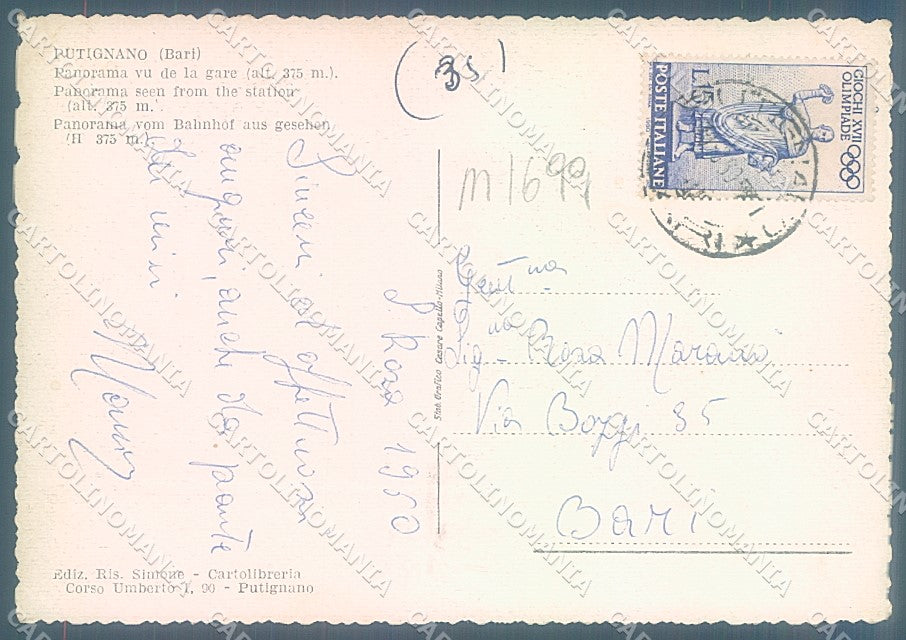 PUTIGNANO (Bari)
Panorama vu de la gare (alt. 375 m.).
Panorama seen from the station
(alt. 375 m.
Panorama vom Bahnhof aus gesehen
(H 375 m.
(35)
m1644
GIOCHI XVII
OLIMPIADE
L.15
POSTE ITALIANE
S. Rosa 1960
Sinceri ed affettuosi
auguri, anche da parte
dei miei
Stab. Grafico Cesare Capello-Milano
Gent.ma
Sig.na Rosa
Via Bozzi 35
Bari
Ediz. Ris. Simone - Cartolibreria
Corso Umberto I, 90 - Putignano
CARTOLINOMANIA